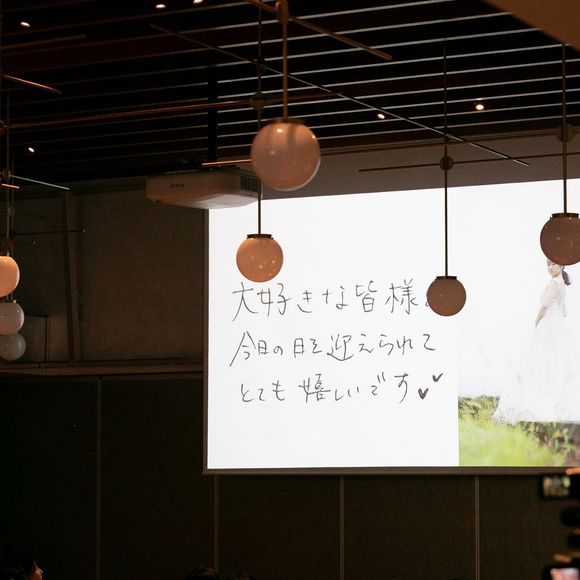 大好きな皆様
今日の日を迎えられて
とても嬉しいです